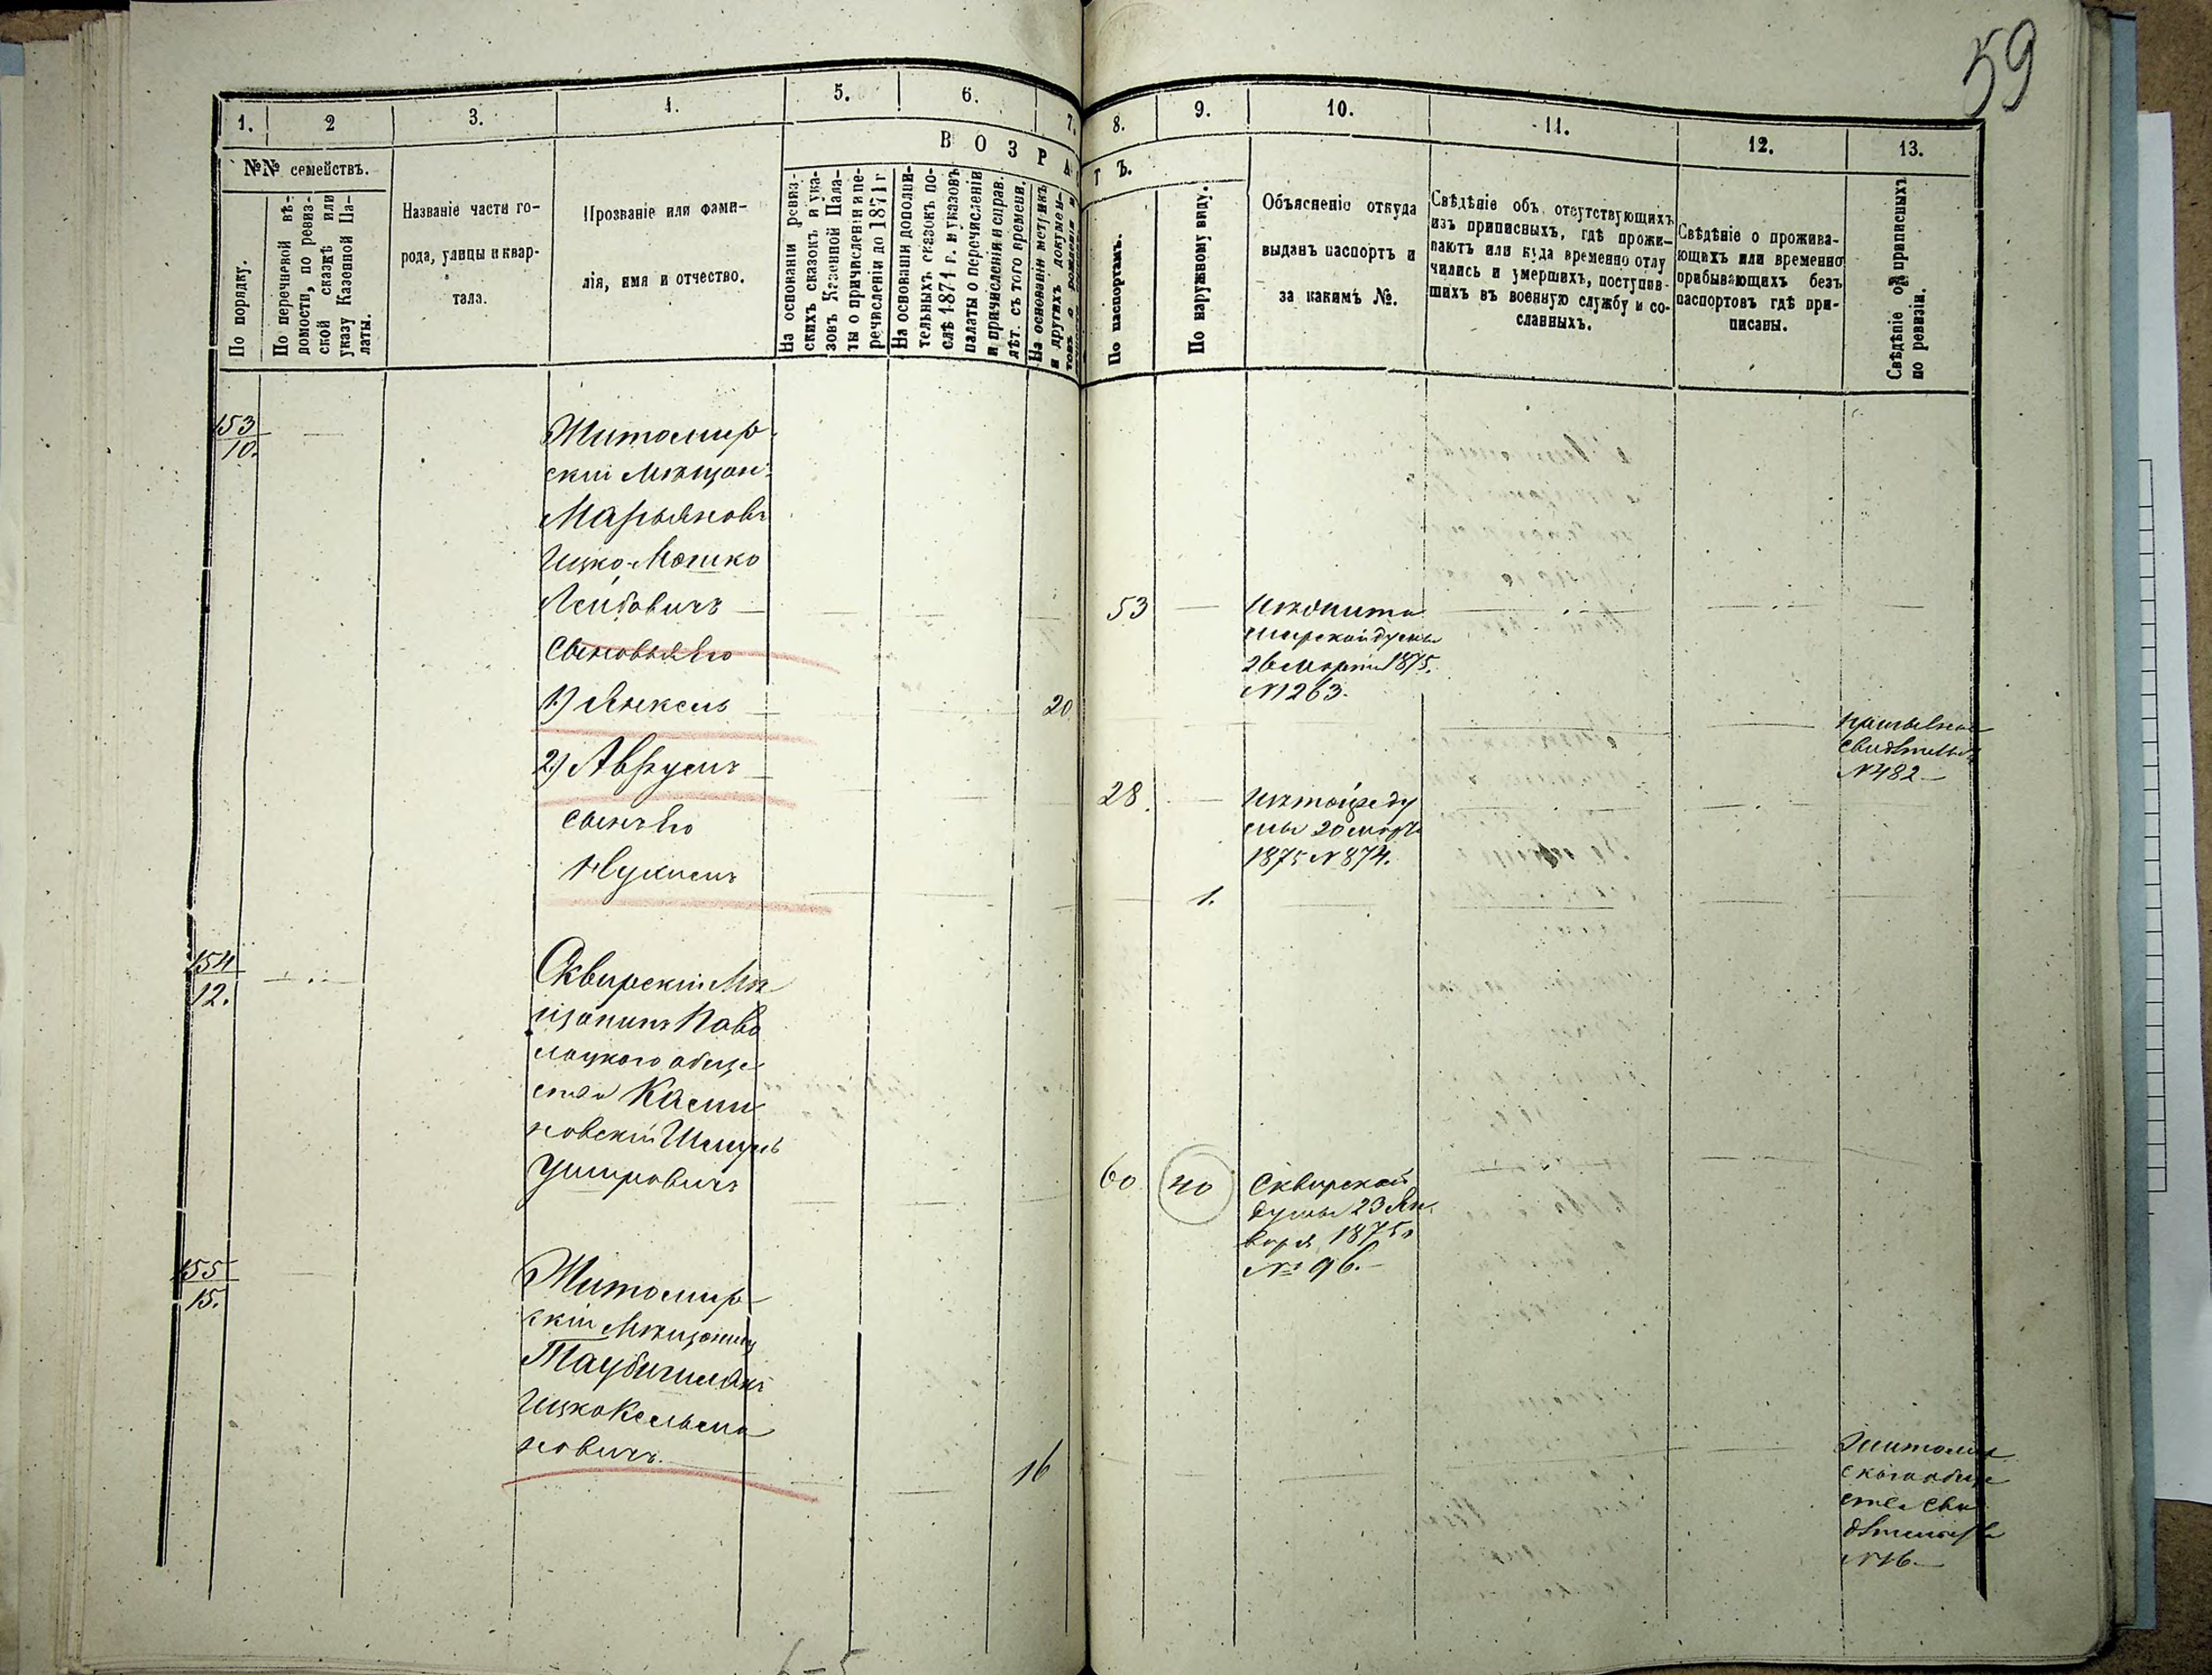 59
1.
2
3.
4.
5.
6.
7.
8.
9.
10.
11.
12.
13.
№№ семействъ.
В О З Р А
Т Ъ.
По порядку.
По перечневой вѣ-
домости, по ревиз-
ской сказкѣ или
указу Казенной Па-
латы.
Названіе части го-
рода, улицы и квар-
тала.
Прозваніе или фами-
лія, имя и отчество.
На основаніи ревиз-
скихъ сказокъ и ука-
зовъ Казенной Пала-
ты о причисленіи и пе-
речисленіи до 1871 г
На основаніи дополни-
тельныхъ сказокъ по-
слѣ 1871 г. и указовъ
палаты о перечисленіи
и причисленіи и справ.
лѣт. съ того времени.
На основаніи метрикъ
и другихъ докумен-
товъ о рожденіи и
По паспортамъ.
По наружному виду.
Объясненіе откуда
выданъ паспортъ и
за какимъ №.
Свѣдѣніе объ отсутствующихъ
изъ приписныхъ, гдѣ прожи-
ваютъ или куда временно отлу
чились и умершихъ, поступив-
шихъ въ военную службу и со-
сланныхъ.
Свѣдѣніе о прожива-
ющихъ или временно
прибывающихъ безъ
паспортовъ гдѣ при-
писаны.
Свѣдѣніе объ приписныхъ
по ревизіи.
153
10.
Житомир-
скій Мѣщан.
Марьяновъ
Ицко-Мошко
Лейбовичъ
53
Изъ Жито
мирской думы
26 Марта 1875.
№ 1263.
сыновья Его
1) Янкель
20
призывное
свидѣтельст
№ 482
2) Аврумъ
28.
Изъ той же ду
мы 20 март
1875 № 874.
сынъ Его
Нухимъ
1.
154
12.
Сквирскій Мѣ
щанинъ Паво
лоцкого обще
ства Касши
новскій Шмуль
Ушировичъ
60
40
Сквирской
думы 23 Ян
варя 1875 г
№ 96.
155
15.
Житомир-
скій Мѣщанинъ
Таубичманъ
Ицко Кельма
новичъ.
16
Житомир
скаго обще
ства сви
дѣтельств
№ 16
6-5